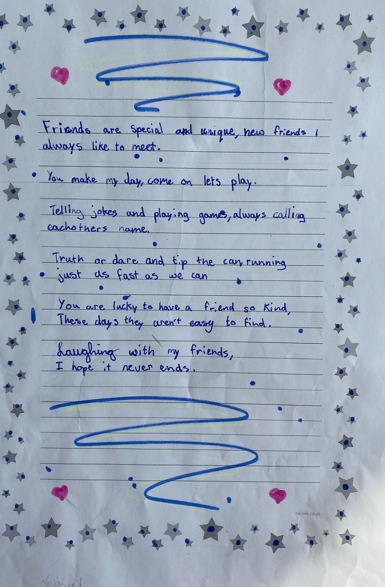 Friends are special and unique, new friends I
always like to meet.
You make my day, come on lets play.
Telling jokes and playing games, always calling
eachothers name.
Truth or dare and tip the can, running
just as fast as we can
You are lucky to have a friend so kind,
These days they aren't easy to find.
Laughing with my friends,
I hope it never ends.